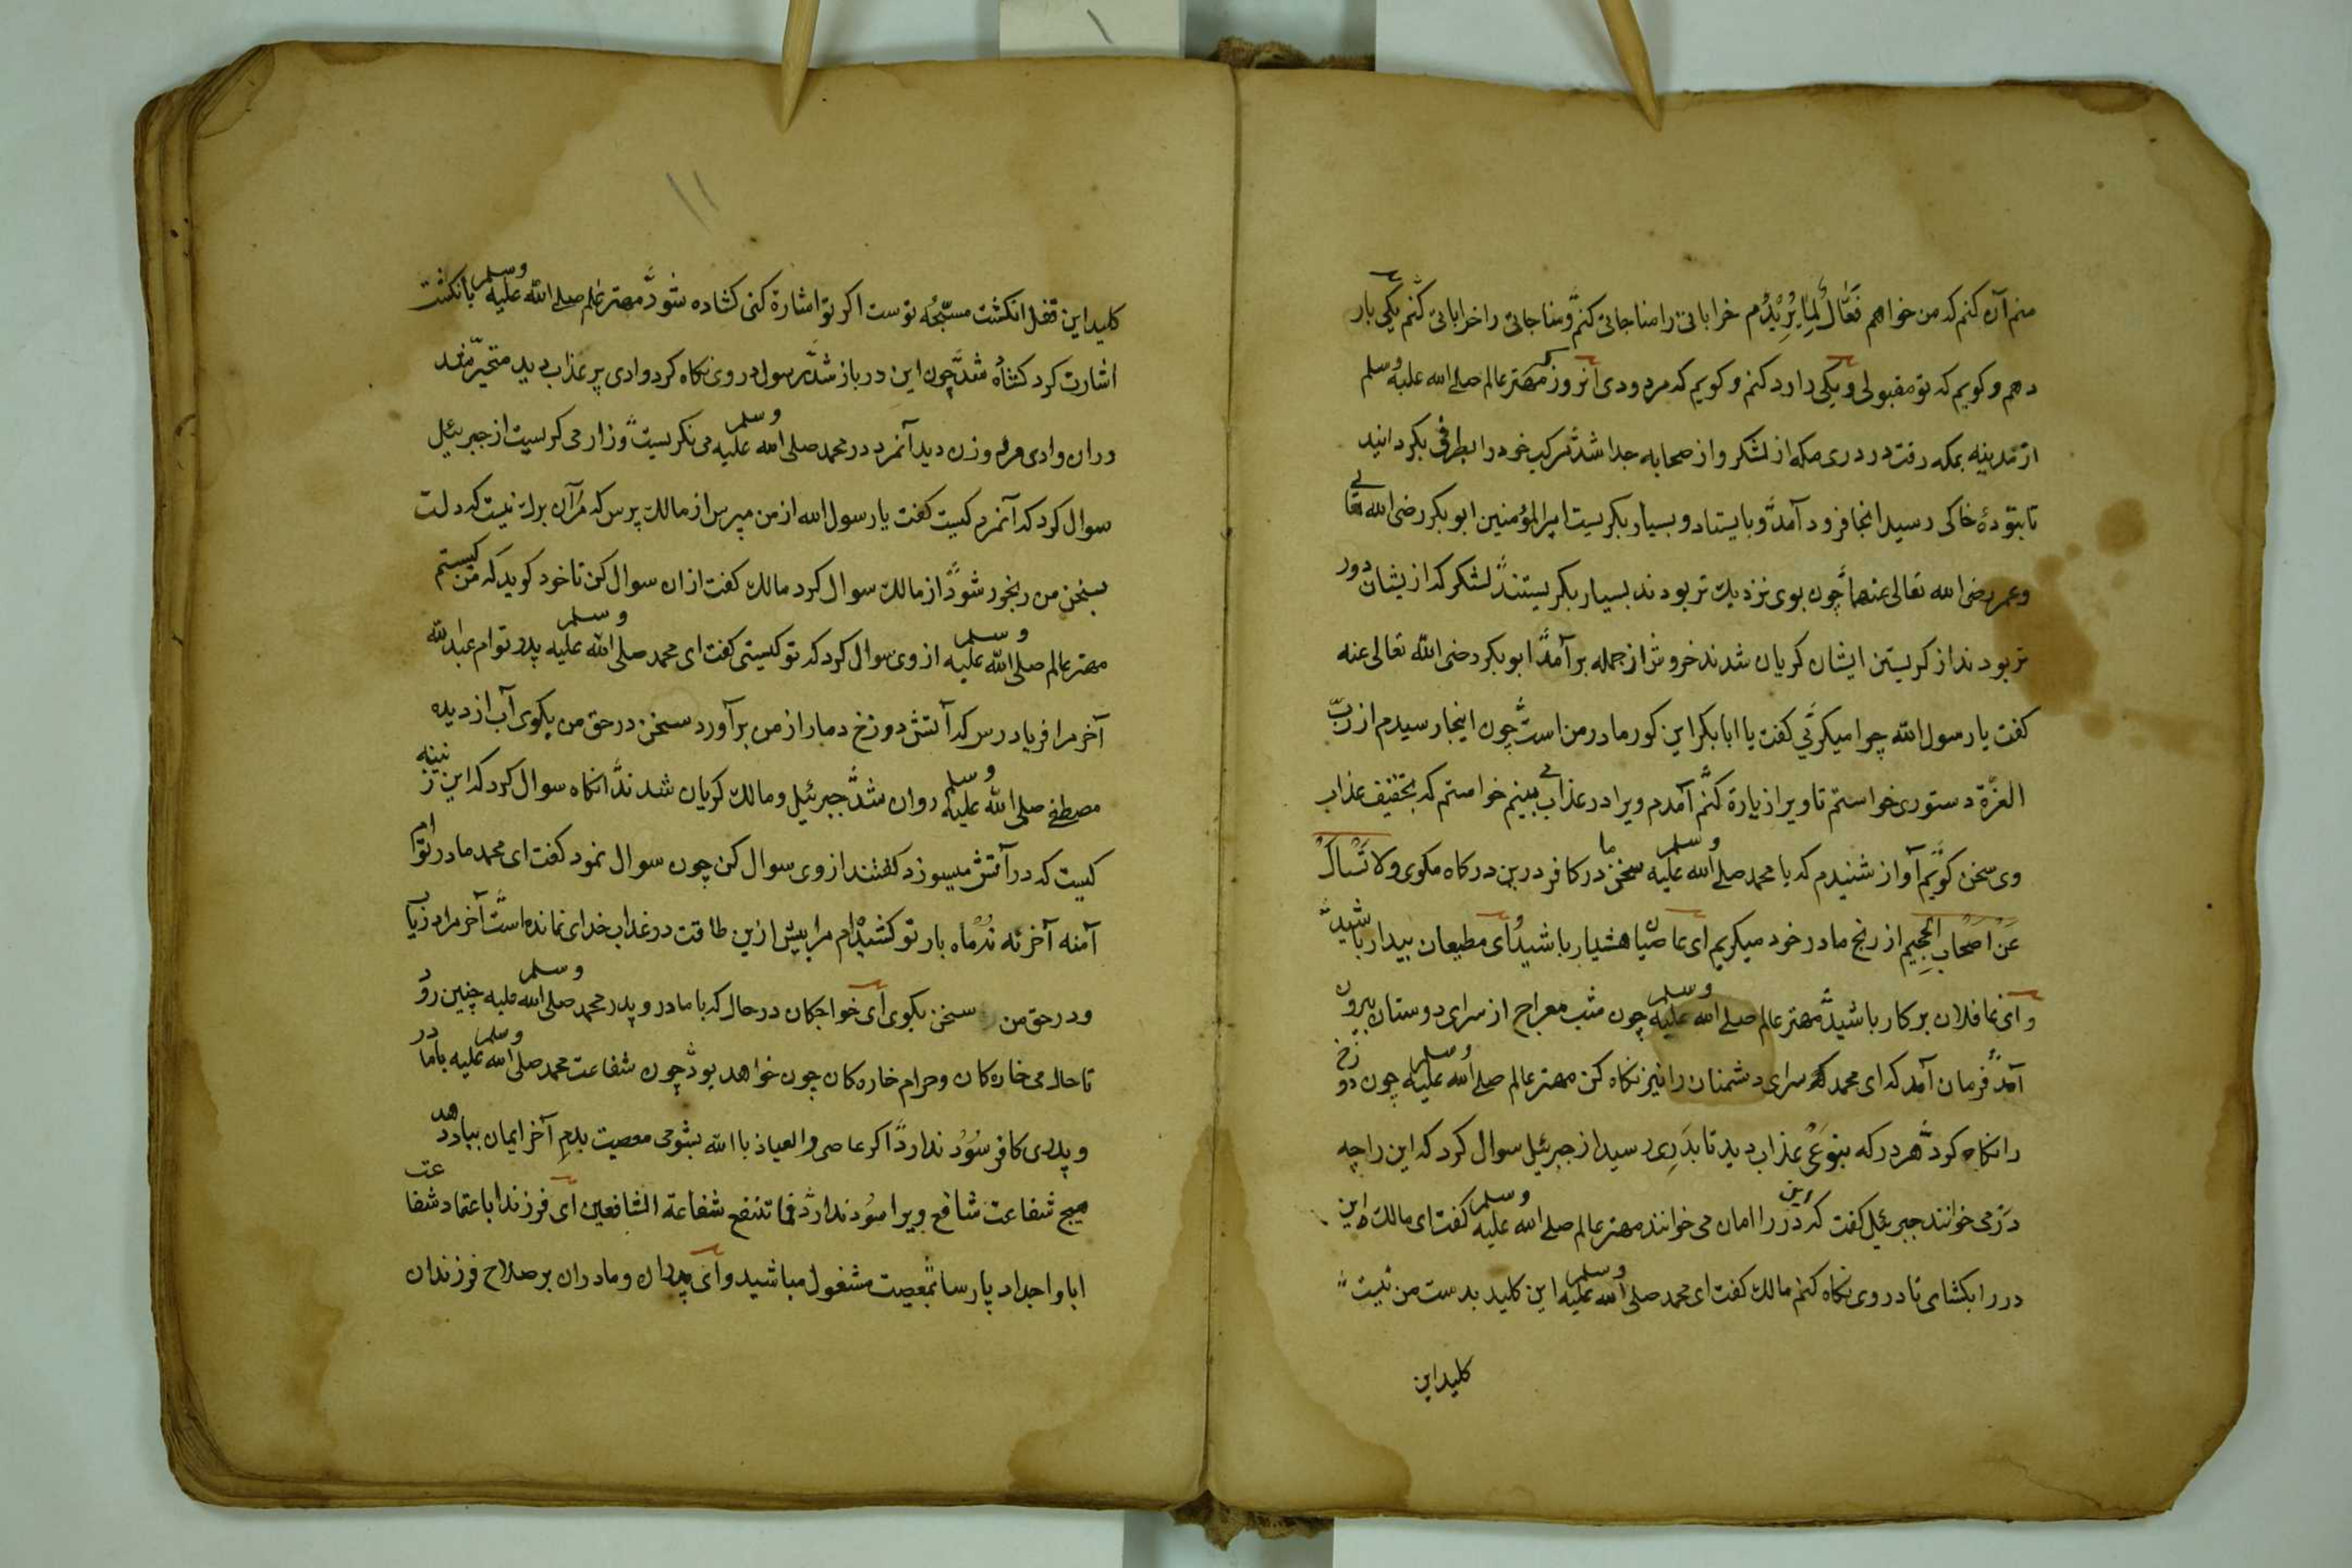 منم آن کنم که من خواهم فَعَّالٌ لِمَا یُرِیْدُم خراباتی را مناجاتی کنم و مناجاتی را خراباتی کنم یکی بار
دهم و کویم که تو مقبولی و یکی را رد کنم و کویم که مردودی آنروز که مهتر عالم صلی الله علیه وسلم
از مدینه بمکه رفت در دری مکه از لشکر و از صحابه جدا شد مرکب خود را بطرفی بکردانید
تا بتودهٔ خاکی رسید انجا فرود آمد و بایستاد و بسیار بکریست امیرالمؤمنین ابوبکر رضی الله تعالی
و عمر رضی الله تعالی عنهما چون بوی نزدیک تر بودند بسیار بکریستند لشکر که ازیشان دور
تر بودند از کریستن ایشان کریان شدند خروش از جمله برآمد ابوبکر رضی الله تعالی عنه
کفت یا رسول الله چرا میکرئی کفت یا ابابکر این کور مادر من است چون اینجا رسیدم از ربّ
العزّة دستوری خواستم تا ویرا زیارة کنم آمدم ویرا در عذاب می بینم خواستم که بتخفیف عذاب
وی سخن کویم آواز شنیدم که یا محمد صلی الله علیه وسلم سخن ما در کافر درین درکاه مکوی ولا تُسْأَلُ
عَنْ اَصْحَابِ الْجَحِیمِ از رنج مادر خود میکریم ای عاصیان هشیار باشید و ای مطیعان بیدار باشید
و ای غافلان بر کار باشید مهتر عالم صلی الله علیه وسلم چون شب معراج از سرای دوستان بیرون
آمد فرمان آمد که ای محمد که سرای دشمنان را نیز نکاه کن مهتر عالم صلی الله علیه وسلم چون دوزخ
را نکاه کرد هر درکه بنوعی عذاب دید تا بدَرِی رسید از جبرئیل سوال کرد که این را چه
دَر می خوانند جبرئیل کفت که این در را امان می خوانند مهتر عالم صلی الله علیه وسلم کفت ای مالک این
در را بکشای تا در وی نکاه کنم مالک کفت ای محمد صلی الله علیه وسلم این کلید بدست من نیست
کلید این
۱۱
کلید این قفل انکشت مسبّحه توست اکر تو اشارة کنی کشاده شود مهتر عالم صلی الله علیه وسلم بانکشت
اشارت کرد کشاده شد چون این در باز شد رسول در وی نکاه کرد وادی پر عذاب دید متحیّر بماند
دران وادی مرد و زن دید آنمرد در محمد صلی الله علیه وسلم می نکریست و زار می کریست از جبرئیل
سوال کرد که آنمرد کیست کفت یا رسول الله از من مپرس از مالک پرس که مرا آن برک نیست که دلت
بسخن من رنجور شود از مالک سوال کرد مالک کفت ازان سوال کن تا خود کوید که من کیستم
مهتر عالم صلی الله علیه وسلم از وی سوال کرد که تو کیستی کفت ای محمد صلی الله علیه وسلم پدر توام عبدالله
آخر مرا فریاد رس که آتش دوزخ دمار از من برآورد سخن در حق من بکوی آب از دیده
مصطفی صلی الله علیه وسلم روان شد جبرئیل و مالک کریان شدند انکاه سوال کرد که این زنینه
کیست که در آتش میسوزد کفتند از وی سوال کن چون سوال نمود کفت ای محمد مادر توام
آمنه آخر نه نُه ماه بار تو کشیده ام مرا بیش ازین طاقت در عذاب خدای نمانده است آخر مرا دریاب
و در حق من سخن بکوی ای خواجکان در حال که با مادر و پدر محمد صلی الله علیه وسلم چنین رود
تا حال می خاره کان و حرام خاره کان چون خواهد بود چون شفاعت محمد صلی الله علیه وسلم با مادر
و پدری کافر سُود ندارد اکر عاصی والعیاذ باالله بشومی معصیت بدم آخر ایمان بباد دهد
هیچ شفاعت شافع ویرا سُود ندارد فما تنفع شفاعة الشافعین ای فرزندا با عتماد شفاعت
ابا و اجداد پارسا بمعصیت مشغول مباشید و ای پدران و مادران بر صلاح فرزندان